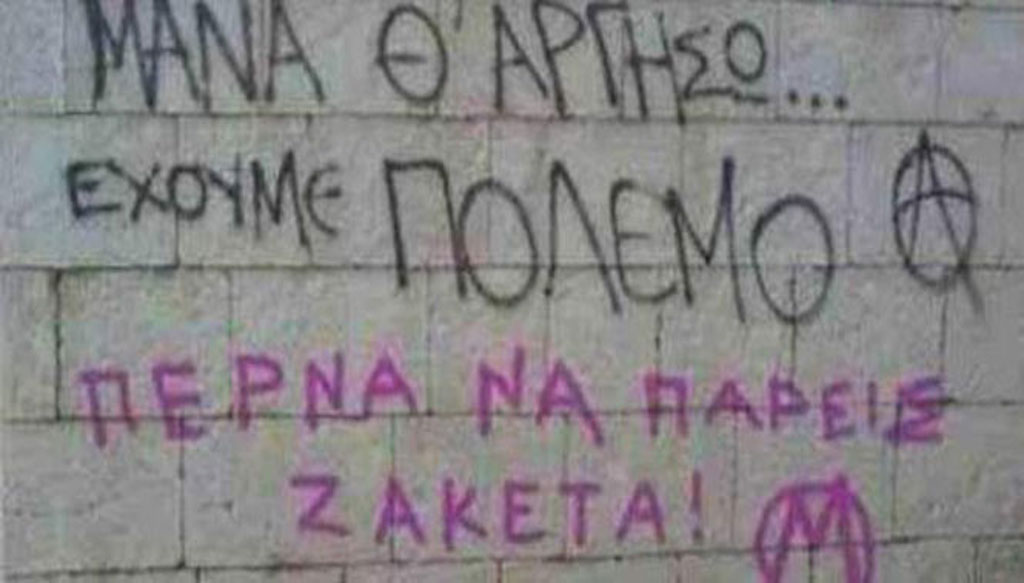 ΜΑΝΑ Θ' ΑΡΓΗΣΩ...
ΕΧΟΥΜΕ ΠΟΛΕΜΟ Α
ΠΕΡΝΑ ΝΑ ΠΑΡΕΙΣ
ΖΑΚΕΤΑ! Μ